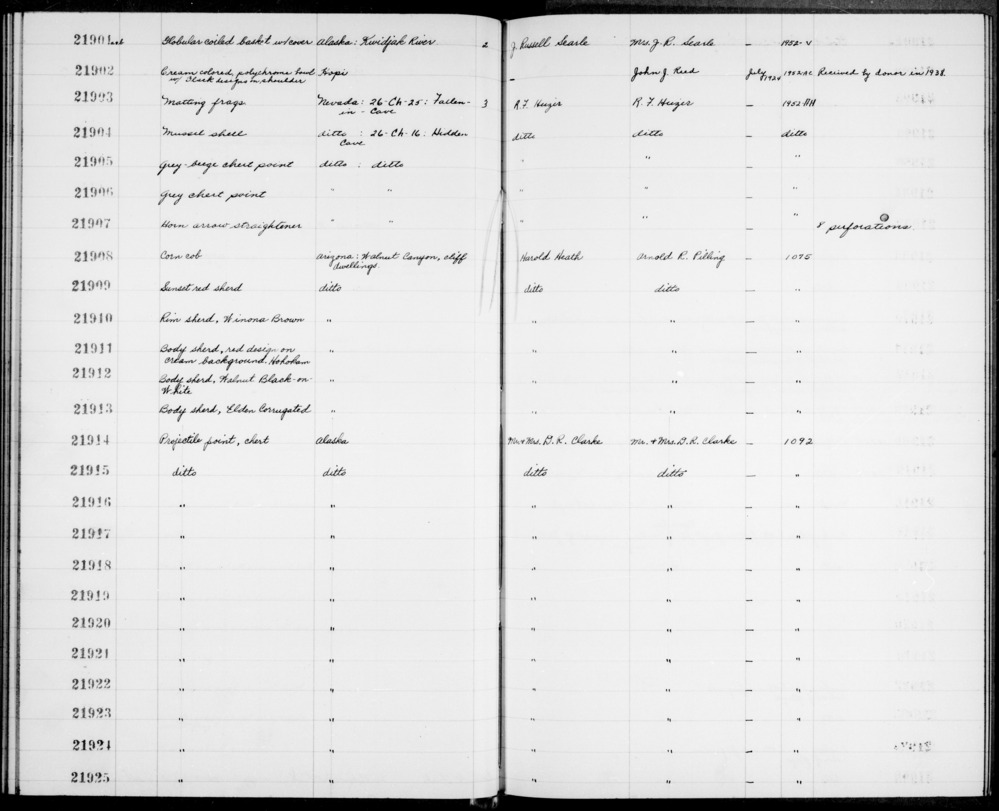 21901a,b Globular coiled basket w/cover Alaska: Kwidjak River 2 J. Russell Searle Mrs. J. R. Searle — 1952-V
21902 Cream colored, polychrome bowl Hopi — John J. Reed July 1952 AC Received by donor in 1938.
w/ black designs on shoulder
21903 Matting frags Nevada: 26-Ch-25: Fallen- 3 R. F. Heizer R. F. Heizer — 1952 HH
in - Cave
21904 Mussel shell ditto : 26-Ch-16: Hidden ditto ditto ditto
Cave
21905 Grey-beige chert point ditto : ditto " " — "
21906 Grey chert point " " " " — "
21907 Horn arrow straightener " " " " — " 8 perforations
21908 Corn cob Arizona: Walnut Canyon, cliff Harold Heath Arnold R. Pilling — 1075
dwellings
21909 Sunset red sherd ditto ditto ditto — "
21910 Rim sherd, Winona Brown " " " — "
21911 Body sherd, red design on " " " — "
cream background. Hohokam
21912 Body sherd, Walnut Black-on- " " " — "
White
21913 Body sherd, Elden Corrugated " " " — "
21914 Projectile point, chert Alaska Mr. & Mrs. D. R. Clarke Mr. & Mrs. D. R. Clarke — 1092
21915 ditto ditto ditto ditto — "
21916 " " " " — "
21917 " " " " — "
21918 " " " " — "
21919 " " " " — "
21920 " " " " — "
21921 " " " " — "
21922 " " " " — "
21923 " " " " — "
21924 " " " " — "
21925 " " " " — "